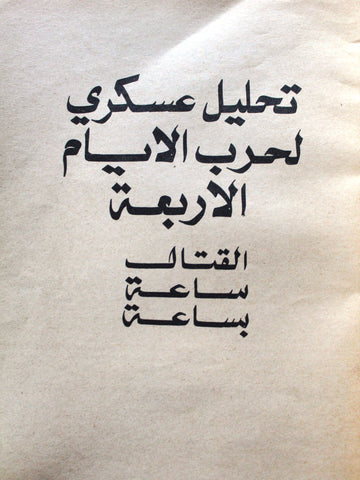 تحليل عسكري
لحرب الايام
الاربعة
القتال
ساعة
بساعة